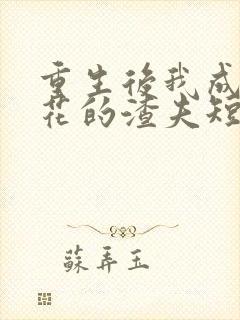 重生後我成
花的渣夫短
蘇弄玉